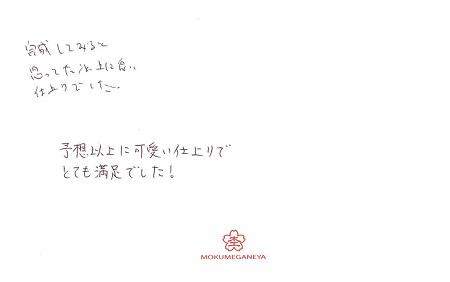 完成してみると
思ってた以上に良い
仕上りでした。
予想以上に可愛い仕上りで
とても満足でした！
MOKUMEGANEYA